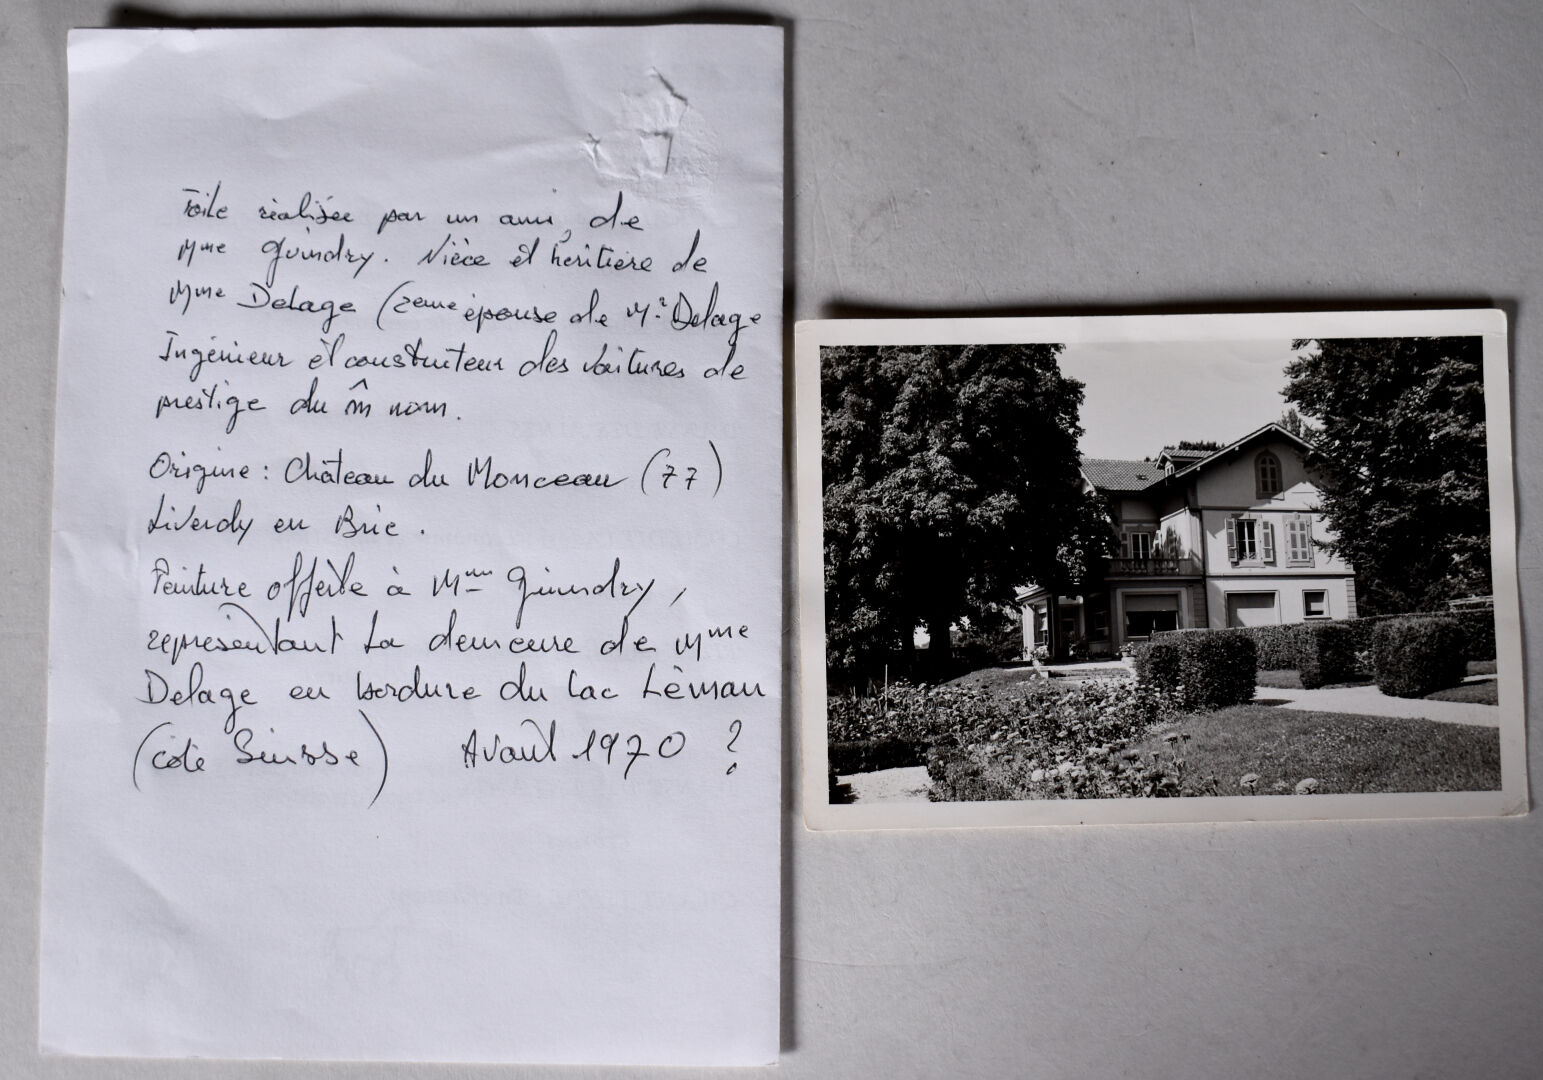 Toile réalisée par un ami, de
Mme Guindry. Nièce et héritière de
Mme Delage (2ème épouse de Mr Delage
Ingénieur et constructeur des voitures de
prestige du m̂ nom.
Origine : Château du Monceau (77)
Liverdy en Brie.
Peinture offerte à Mme Guindry,
représentant la demeure de Mme
Delage en bordure du lac Léman
(côté Suisse) Avant 1970 ?